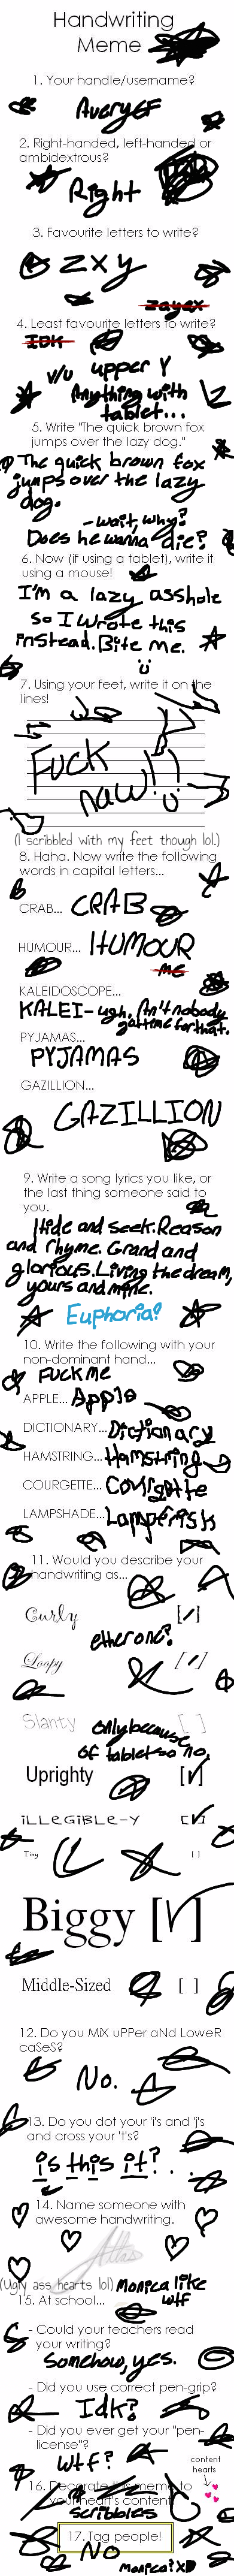 Handwriting
Meme
1. Your handle/username?
AveryCF
2. Right-handed, left-handed or
ambidextrous?
Right
3. Favourite letters to write?
Z X Y
4. Least favourite letters to write?
IDK
v/u upper Y
Anything with
tablet...
5. Write "The quick brown fox
jumps over the lazy dog."
The quick brown fox
jumps over the lazy
dog.
- wait, why?
Does he wanna die?
6. Now (if using a tablet), write it
using a mouse!
I'm a lazy asshole
So I wrote this
instead. Bite me.
7. Using your feet, write it on the
lines!
Fuck
naw!!
(I scribbled with my feet though lol.)
8. Haha. Now write the following
words in capital letters...
CRAB... CRAB
HUMOUR... HUMOUR
KALEIDOSCOPE...
KALEI-ugh. Ain't nobody
got time for that.
PYJAMAS...
PYJAMAS
GAZILLION...
GAZILLION
9. Write a song lyrics you like, or
the last thing someone said to
you.
Hide and seek. Reason
and rhyme. Grand and
glorious. Living the dream,
yours and mine.
Euphoria!
10. Write the following with your
non-dominant hand...
FUCK me
APPLE... Apple
DICTIONARY... Dictionary
HAMSTRING... Hamstring
COURGETTE... Courgette
LAMPSHADE...
11. Would you describe your
handwriting as...
Curly [/]
either one?
Loopy [/]
Slanty [ ]
Only because
of tablet so no.
Uprighty [√]
iLLeGiBLe-y [√]
Tiny [ ]
Biggy [√]
Middle-Sized [ ]
12. Do you MiX uPPer aNd LoweR
caSeS?
No.
13. Do you dot your 'i's and 'j's
and cross your 't's?
is this it?...
14. Name someone with
awesome handwriting.
(Ugly ass hearts lol) Monica like
wtf
15. At school...
- Could your teachers read
your writing?
Somehow, yes.
- Did you use correct pen-grip?
Idk?
- Did you ever get your "pen-
license"?
wtf?
content
hearts
16. Decorate this meme to
your heart's content!
scribbles
17. Tag people!
NO
Monica! XD